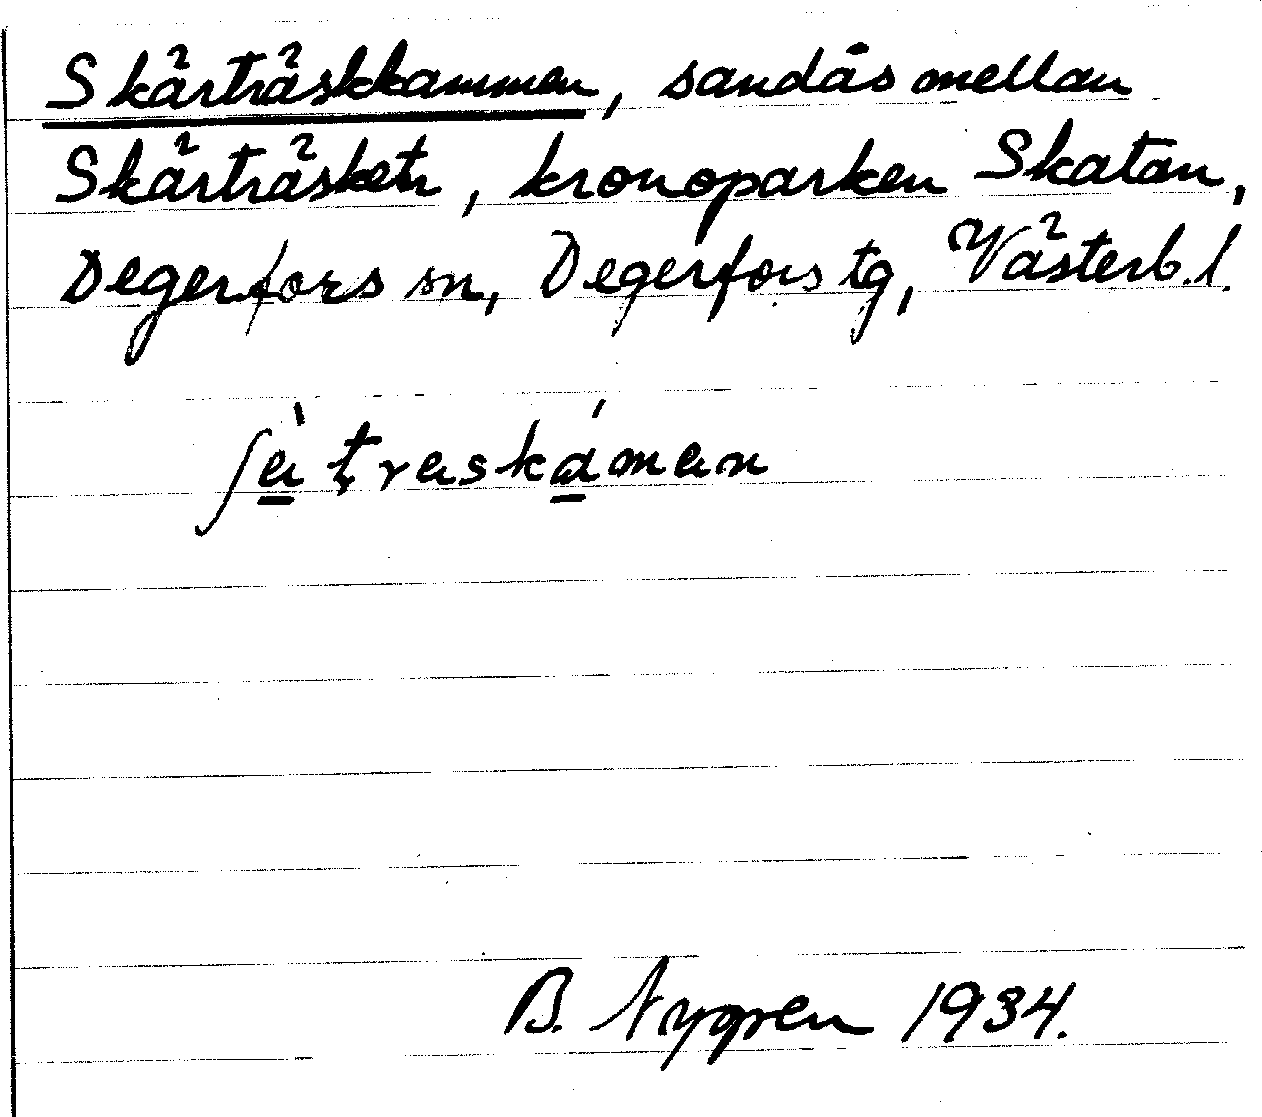 Skärträskkammen, sandås mellan
Skärträsken, kronoparken Skatan,
Degerfors sn, Degerfors tg, Västerb.l.
B. Nygren 1934.